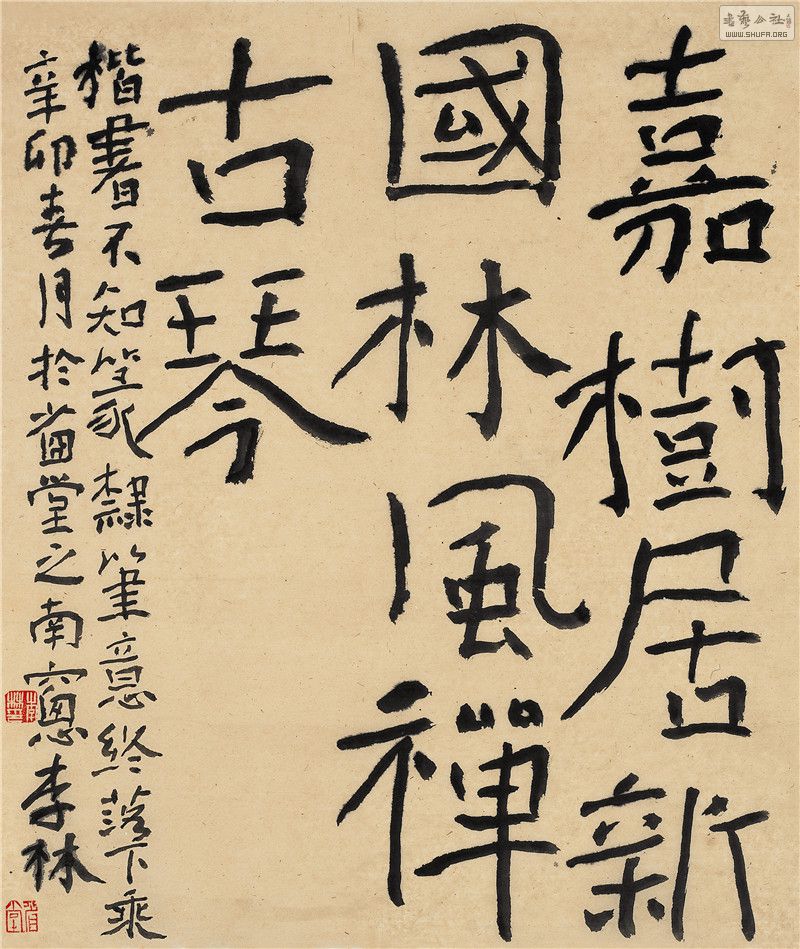 嘉樹居新
國林風禪
古琴
楷書不知篆隸筆意終落下乘
辛卯春月於畄堂之南窗李林
書藝公社
WWW.SHUFA.ORG